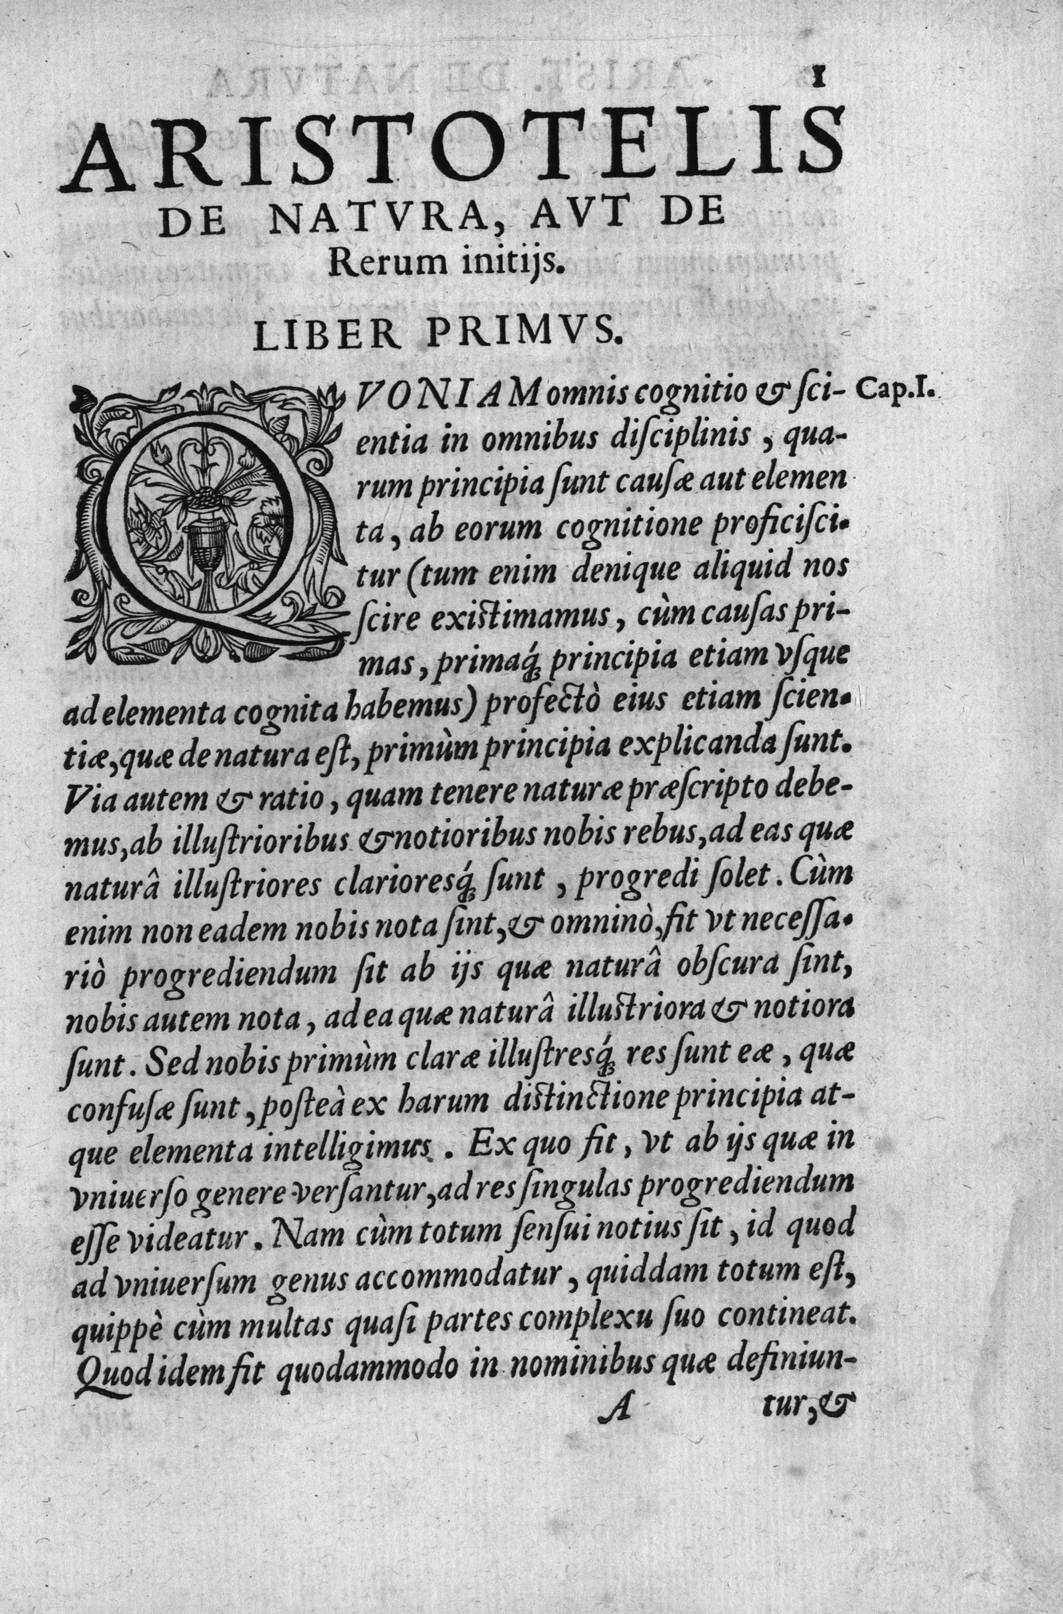 1
ARISTOTELIS
DE NATVRA, AVT DE
Rerum initijs.
LIBER PRIMVS.
QVONIAM omnis cognitio & ſci- Cap.I.
entia in omnibus diſciplinis, qua-
rum principia ſunt cauſæ aut elemen
ta, ab eorum cognitione proficiſci-
tur (tum enim denique aliquid nos
ſcire exiſtimamus, cùm cauſas pri-
mas, primaq́; principia etiam vſque
ad elementa cognita habemus) profectò eius etiam ſcien-
tiæ, quæ de natura eſt, primùm principia explicanda ſunt.
Via autem & ratio, quam tenere naturæ præſcripto debe-
mus, ab illuſtrioribus & notioribus nobis rebus, ad eas quæ
naturâ illuſtriores clarioresq́; ſunt, progredi ſolet. Cùm
enim non eadem nobis nota ſint, & omninò, fit vt neceſſa-
riò progrediendum ſit ab ijs quæ naturâ obſcura ſint,
nobis autem nota, ad ea quæ naturâ illuſtriora & notiora
ſunt. Sed nobis primùm claræ illuſtresq́; res ſunt eæ, quæ
confuſæ ſunt, poſteà ex harum diſtinctione principia at-
que elementa intelligimus. Ex quo fit, vt ab ijs quæ in
vniuerſo genere verſantur, ad res ſingulas progrediendum
eſſe videatur. Nam cùm totum ſenſui notius ſit, id quod
ad vniuerſum genus accommodatur, quiddam totum eſt,
quippè cùm multas quaſi partes complexu ſuo contineat.
Quod idem fit quodammodo in nominibus quæ definiun-
A tur, &